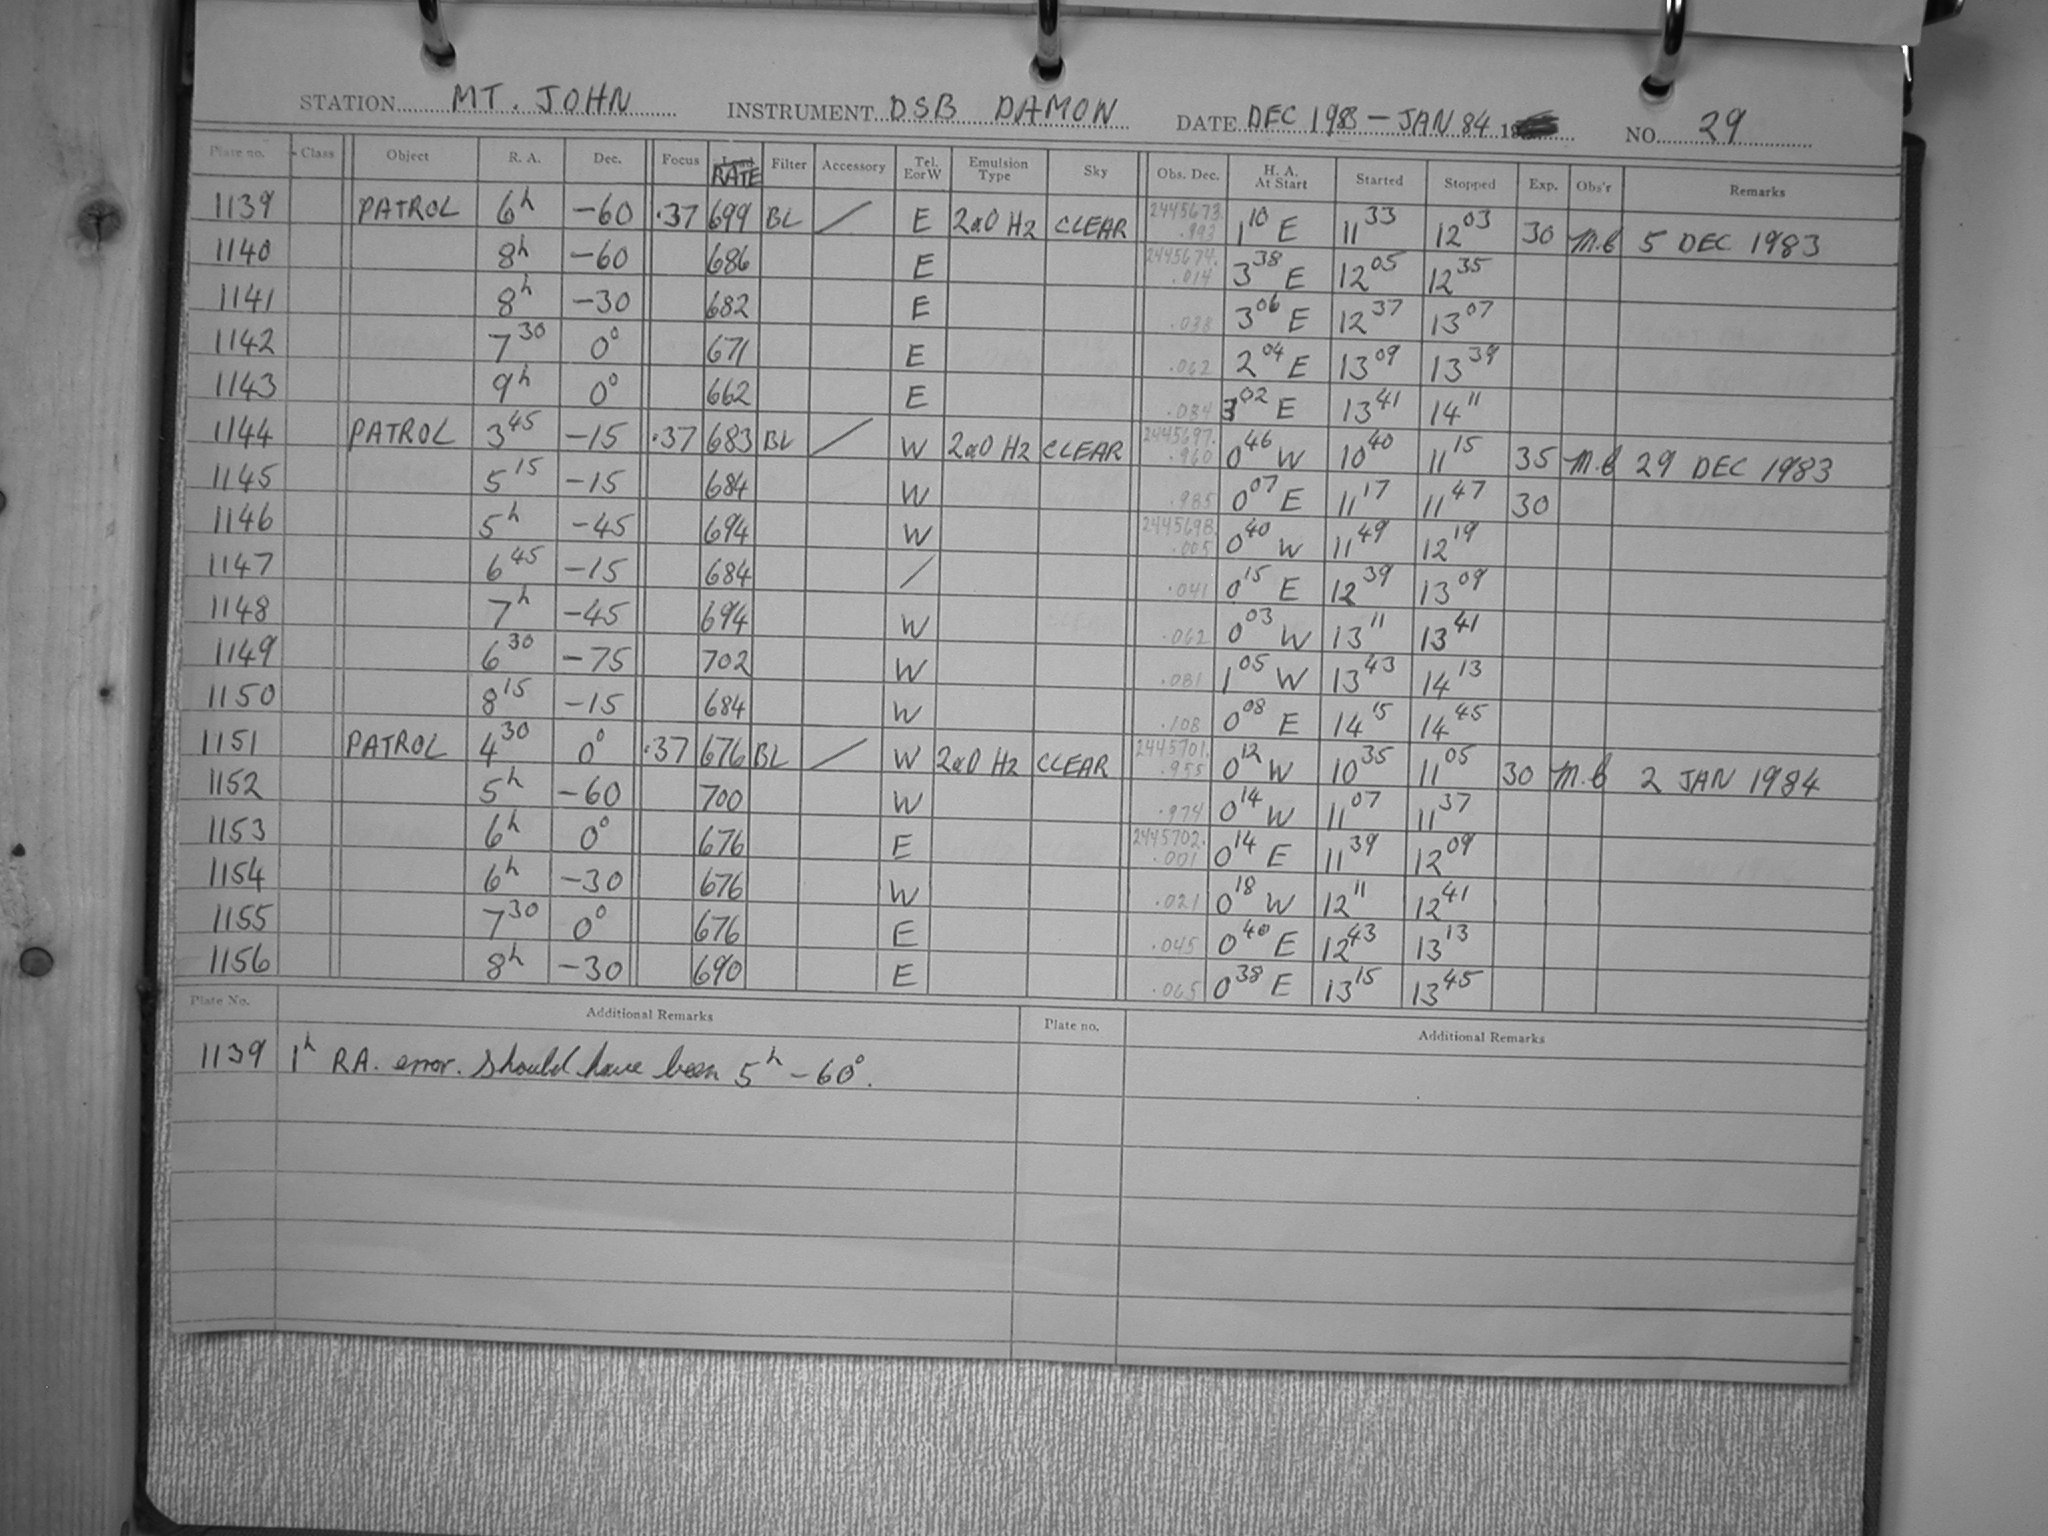 STATION MT. JOHN INSTRUMENT DSB DAMON DATE DEC 1983 – JAN 84 NO. 29
Plate no. Class Object R. A. Dec. Focus RATE Filter Accessory Tel. E or W Emulsion Type Sky Obs. Dec. H. A. At Start Started Stopped Exp. Obs'r Remarks
1139 PATROL 6h -60 .37 699 BL / E 2aO H2 CLEAR 2445673.993 1 10 E 11 33 12 03 30 M.C 5 DEC 1983
1140 8h -60 686 E 2445674.014 3 38 E 12 05 12 35
1141 8h -30 682 E .038 3 06 E 12 37 13 07
1142 7 30 0° 671 E .062 2 04 E 13 09 13 39
1143 9h 0° 662 E .084 3 02 E 13 41 14 11
1144 PATROL 3 45 -15 .37 683 BL / W 2aO H2 CLEAR 2445697.960 0 46 W 10 40 11 15 35 M.C 29 DEC 1983
1145 5 15 -15 684 W .985 0 07 E 11 17 11 47 30
1146 5h -45 694 W 2445698.005 0 40 W 11 49 12 19
1147 6 45 -15 684 / .041 0 15 E 12 39 13 09
1148 7h -45 694 W .062 0 03 W 13 11 13 41
1149 6 30 -75 702 W .081 1 05 W 13 43 14 13
1150 8 15 -15 684 W .108 0 08 E 14 15 14 45
1151 PATROL 4 30 0° .37 676 BL / W 2aO H2 CLEAR 2445701.955 0 12 W 10 35 11 05 30 M.C 2 JAN 1984
1152 5h -60 700 W .974 0 14 W 11 07 11 37
1153 6h 0° 676 E 2445702.001 0 14 E 11 39 12 09
1154 6h -30 676 W .021 0 18 W 12 11 12 41
1155 7 30 0° 676 E .045 0 40 E 12 43 13 13
1156 8h -30 690 E .065 0 38 E 13 15 13 45
Plate No. Additional Remarks Plate no. Additional Remarks
1139 1h RA. error. Should have been 5h -60°.